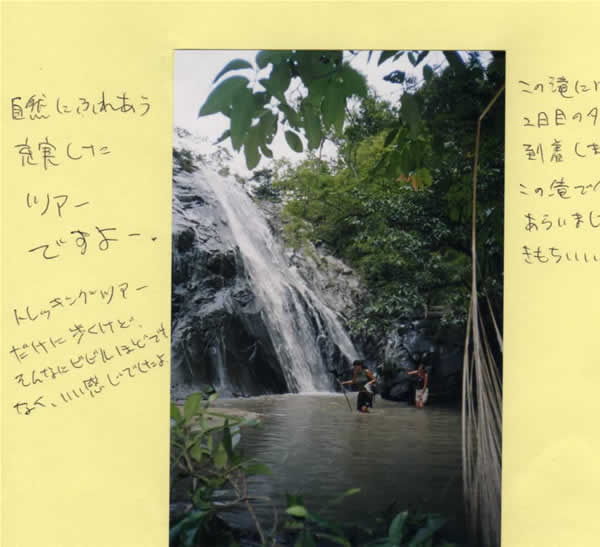 自然にふれあう
充実した
ツアー
ですよー.
トレッキングツアー
だけに歩くけど、
そんなにビビルほどでも
なく、いい感じでしたよ
この滝に
2日目の夕
到着しま
この滝で
あらいまし
きもちいいい